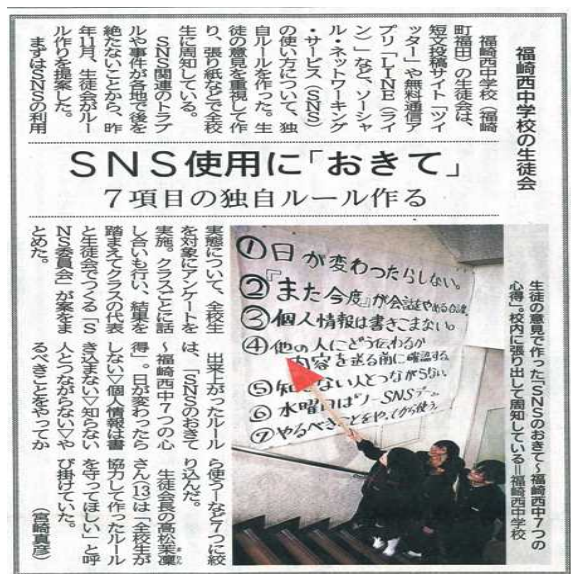 福崎西中学校の生徒会
SNS使用に「おきて」
7項目の独自ルール作る
福崎西中学校（福崎
町福田）の生徒会は、
短文投稿サイト「ツイ
ッター」や無料通信ア
プリ「LINE（ライ
ン）」など、ソーシャ
ル・ネットワーキング
・サービス（SNS）
の使い方について、独
自ルールを作った。生
徒の意見を重視して作
り、張り紙などで全校
生に周知している。
SNS関連のトラブ
ルや事件が各地で後を
絶たないことから、昨
年11月、生徒会がルー
ル作りを提案した。
まずはSNSの利用
実態について、全校生
を対象にアンケートを
実施。クラスごとに話
し合いも行い、結果を
踏まえてクラスの代表
と生徒会でつくる「S
NS委員会」が案をま
とめた。
出来上がったルール
は、「SNSのおきて
～福崎西中7つの心
得」。日が変わったら
しない▽個人情報は書
き込まない▽知らない
人とつながらない▽や
るべきことをやってか
ら使う―など7つに絞
り込んだ。
生徒会長の高松茉凜
さん(13)は「全校生が
協力して作ったルール
を守ってほしい」と呼
び掛けていた。
（宮崎真彦）
①日が変わったらしない。
②『また今度』が会話をやめる合図。
③個人情報は書きこまない。
④他の人にどう伝わるか
内容を送る前に確認する
⑤知らない人とつながらない
⑥水曜日は"ノーSNSデー"
⑦やるべきことをやってから使う。
生徒の意見で作った「SNSのおきて～福崎西中7つの
心得」。校内に張り出して周知している＝福崎西中学校